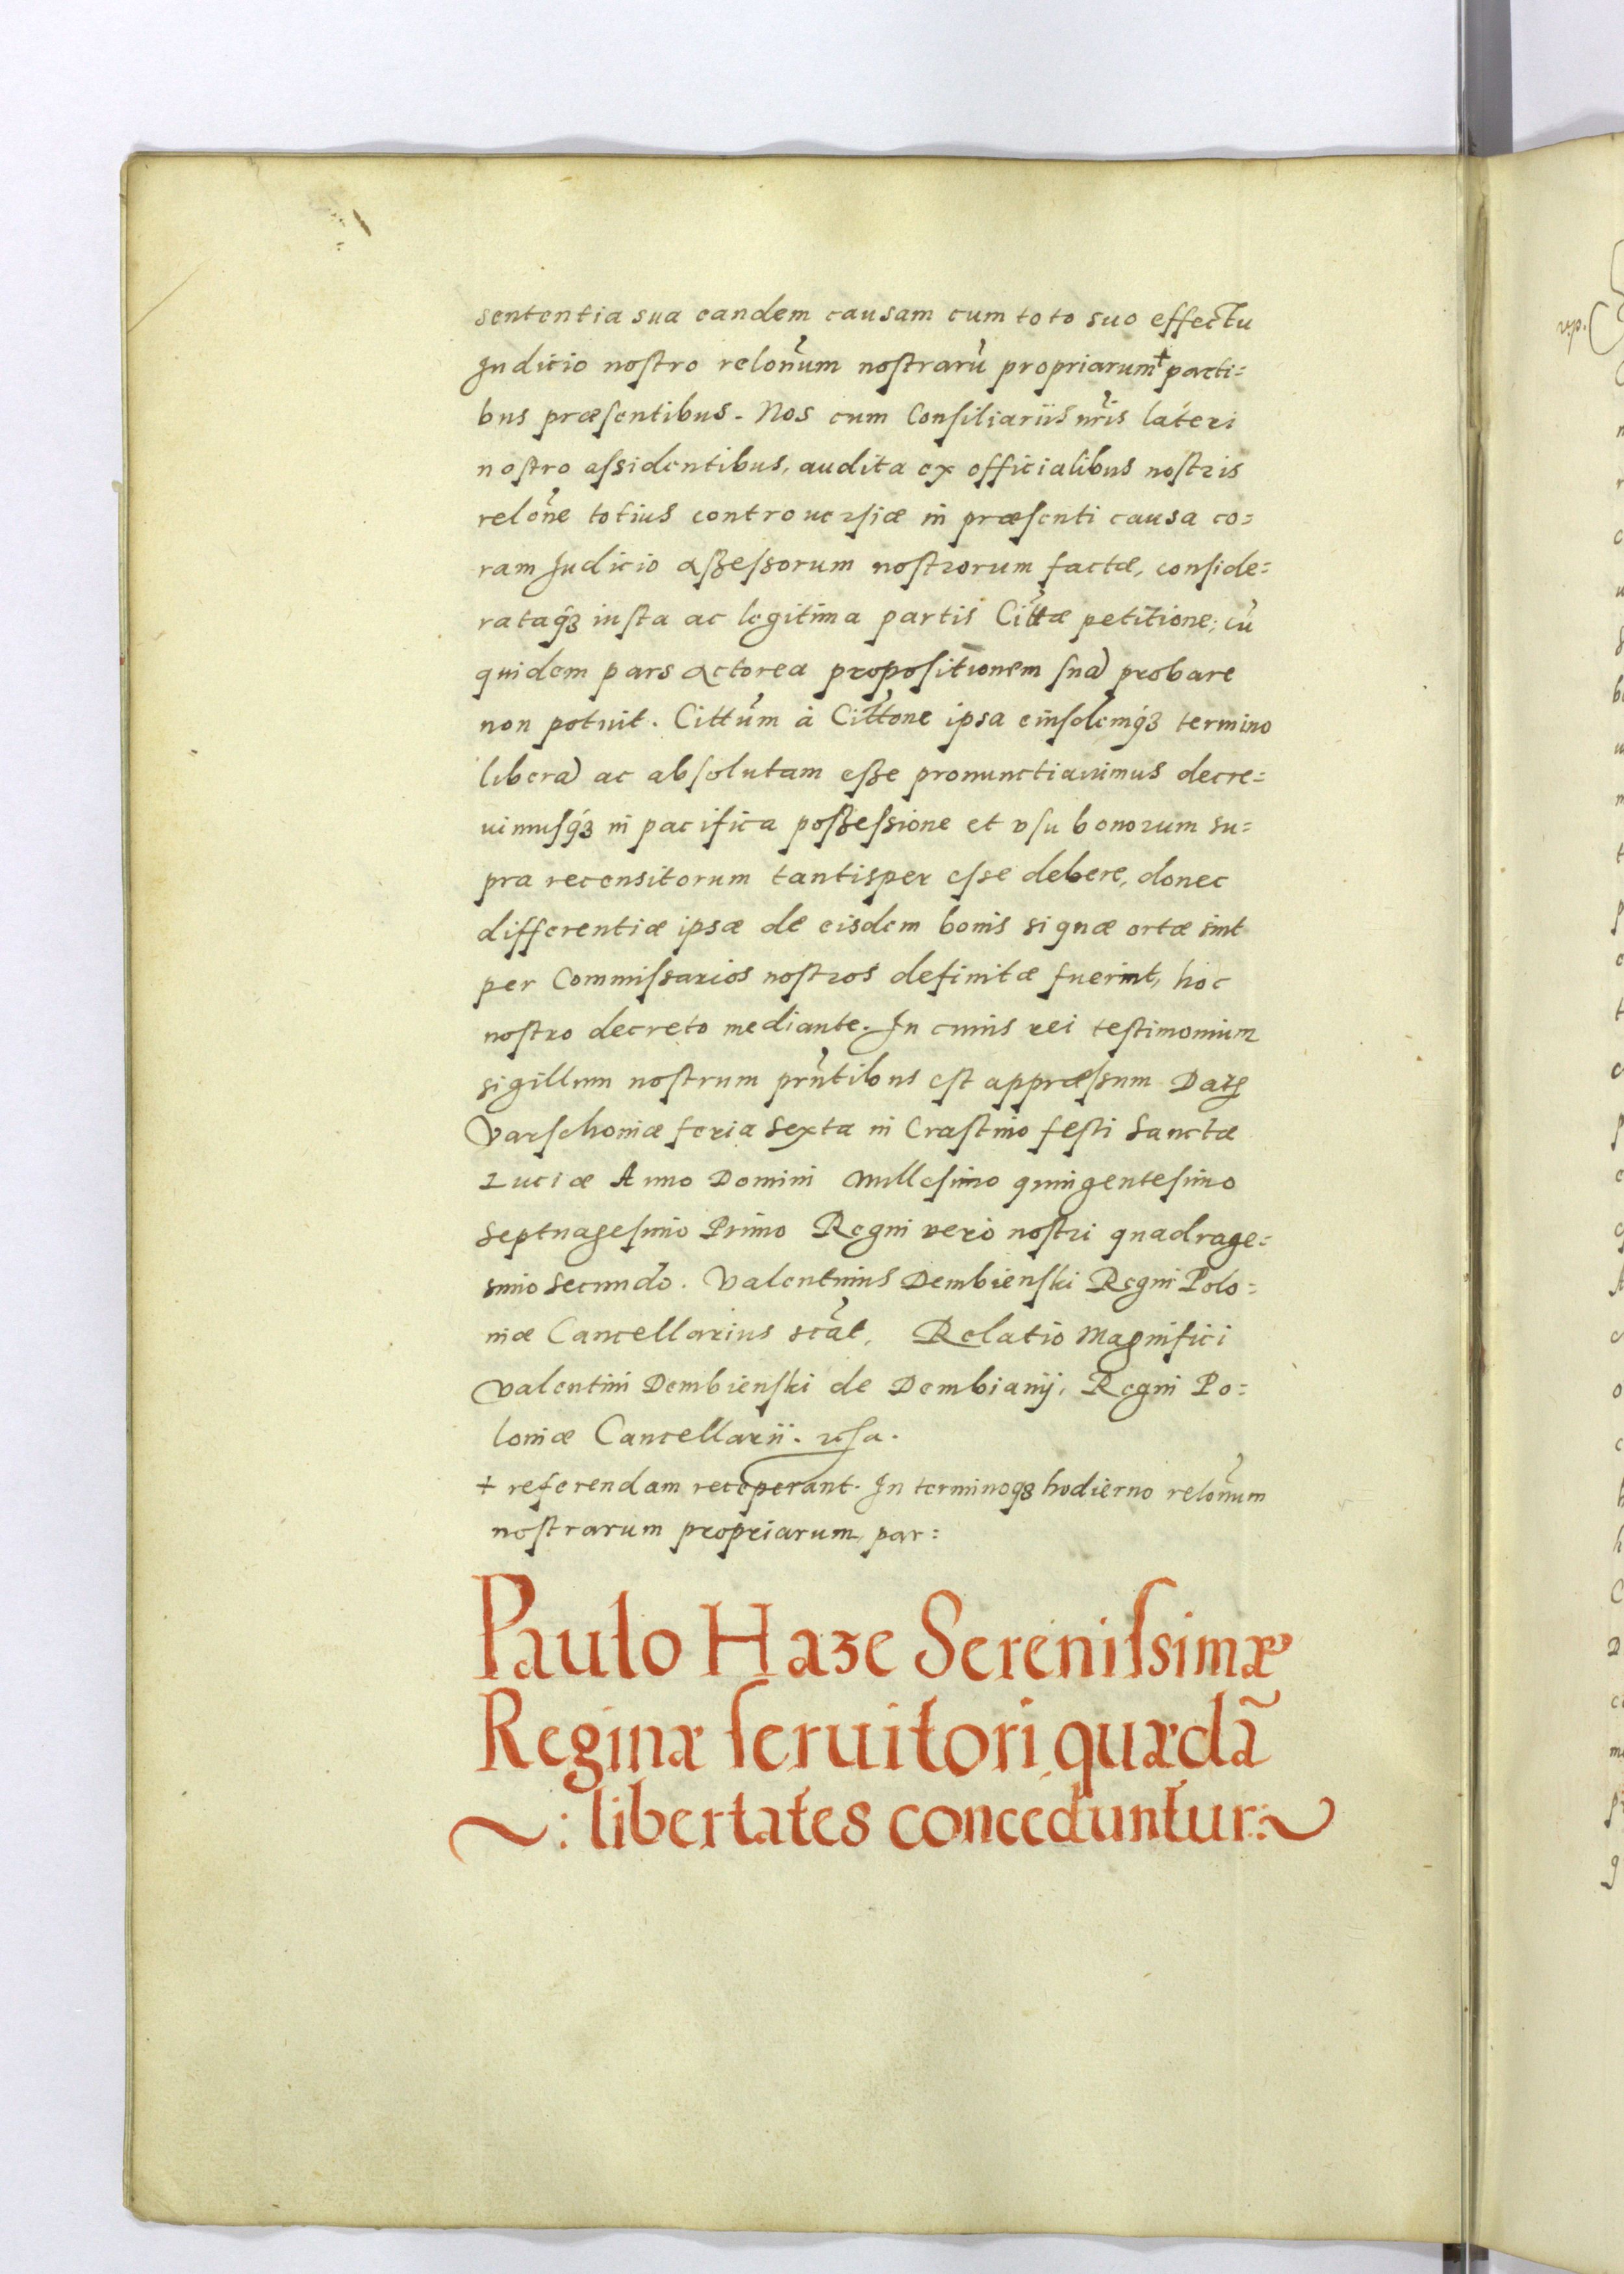 sententia sua eandem causam cum toto suo effectu
Judicio nostro relonum nostraru propriarum + parti=
bus præsentibus. Nos cum Consiliariis nris lateri
nostro assidentibus, audita ex officialibus nostris
relone totius controuersiæ in præsenti causa co=
ram Judicio assessorum nostrorum factæ, conside=
rataq3 iusta ac legitima partis Cittæ petitione, cũ
quidem pars actorea propositionem suã probare
non potuit. Cittum à Cittone ipsa eiusdemq3 termino
liberã ac absolutam esse pronunctiauimus decre=
uimusq3 in pacifica possessione et vsu bonorum su=
pra recensitorum tantisper esse debere, donec
differentiæ ipsæ de eisdem bonis siquæ ortæ sint
per Commissarios nostros definitæ fuerint, hoc
nostro decreto mediante. In cuius rei testimonium
sigillum nostrum prntibus est appræssum Datꝫ
Varschouiæ feria sexta in Crastino festi Sanctæ
Luciæ Anno Domini Millesimo quingentesimo
Septuagesimo Primo Regni vero nostri quadrage=
simo secundo. Valentinus Dembienski Regni Polo=
niæ Cancellarius scãt. Relatio Magnifici
Valentini Dembienski de Dembianij, Regni Po=
loniæ Cancellarii.
+ referendam receperant. In terminoq3 hodierno relonum
nostrarum propriarum, par:
Paulo Haze Serenissimæ
Reginæ seruitori quædã
~: libertates conceduntur:~
v.p.